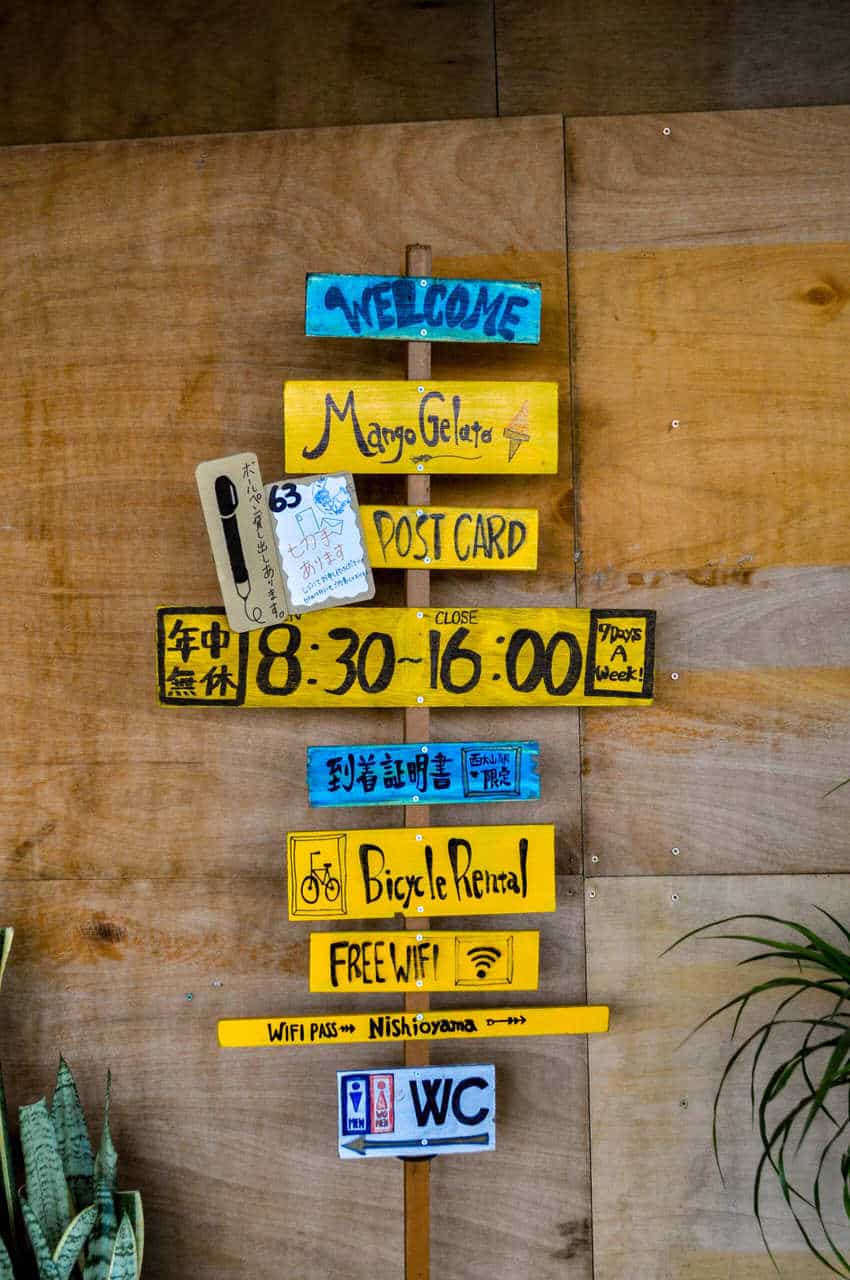 WELCOME
Mango Gelato
ボールペン貸し出しあります。
63
切手
あります
POST CARD
CLOSE
年中
無休
8:30~16:00
7Days
A
Week!
到着証明書
西大山駅
限定
Bicycle Rental
FREE WIFI
WIFI PASS Nishioyama
MEN
WO
MEN
WC